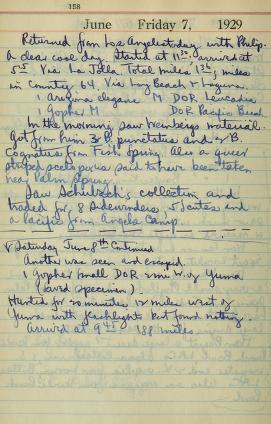 158
June Friday 7, 1929
Returned from Los Angeles today with Philip.
A clear cool day. Started at 11 30 arrived at
5 15 Via La Jolla Total miles 136, miles
in County 64. Via Long Beach & Laguna.
1 Arizona elegans M DOR Leucadia
1 Gopher M DOR Pacific Beach
In the morning saw Weinberg material
Got from him 3 B. punctatus and 2 B.
Cognatus from Fish Spring. Also a queer
striped Sceloporus said to have been taken
near Palm Springs.
Saw Schultz's collection and
traded for 8 Sidewinders, 5 Cerastes and
a Pacific from Angels Camp.
Saturday June 8th Continued
Another was seen and escaped.
1 Gopher small DOR 2 mi W. of Yuma
(saved specimen)
Hunted for 20 minutes 12 miles west of
Yuma with flashlights but found nothing.
Arrived at 9 45 188 miles